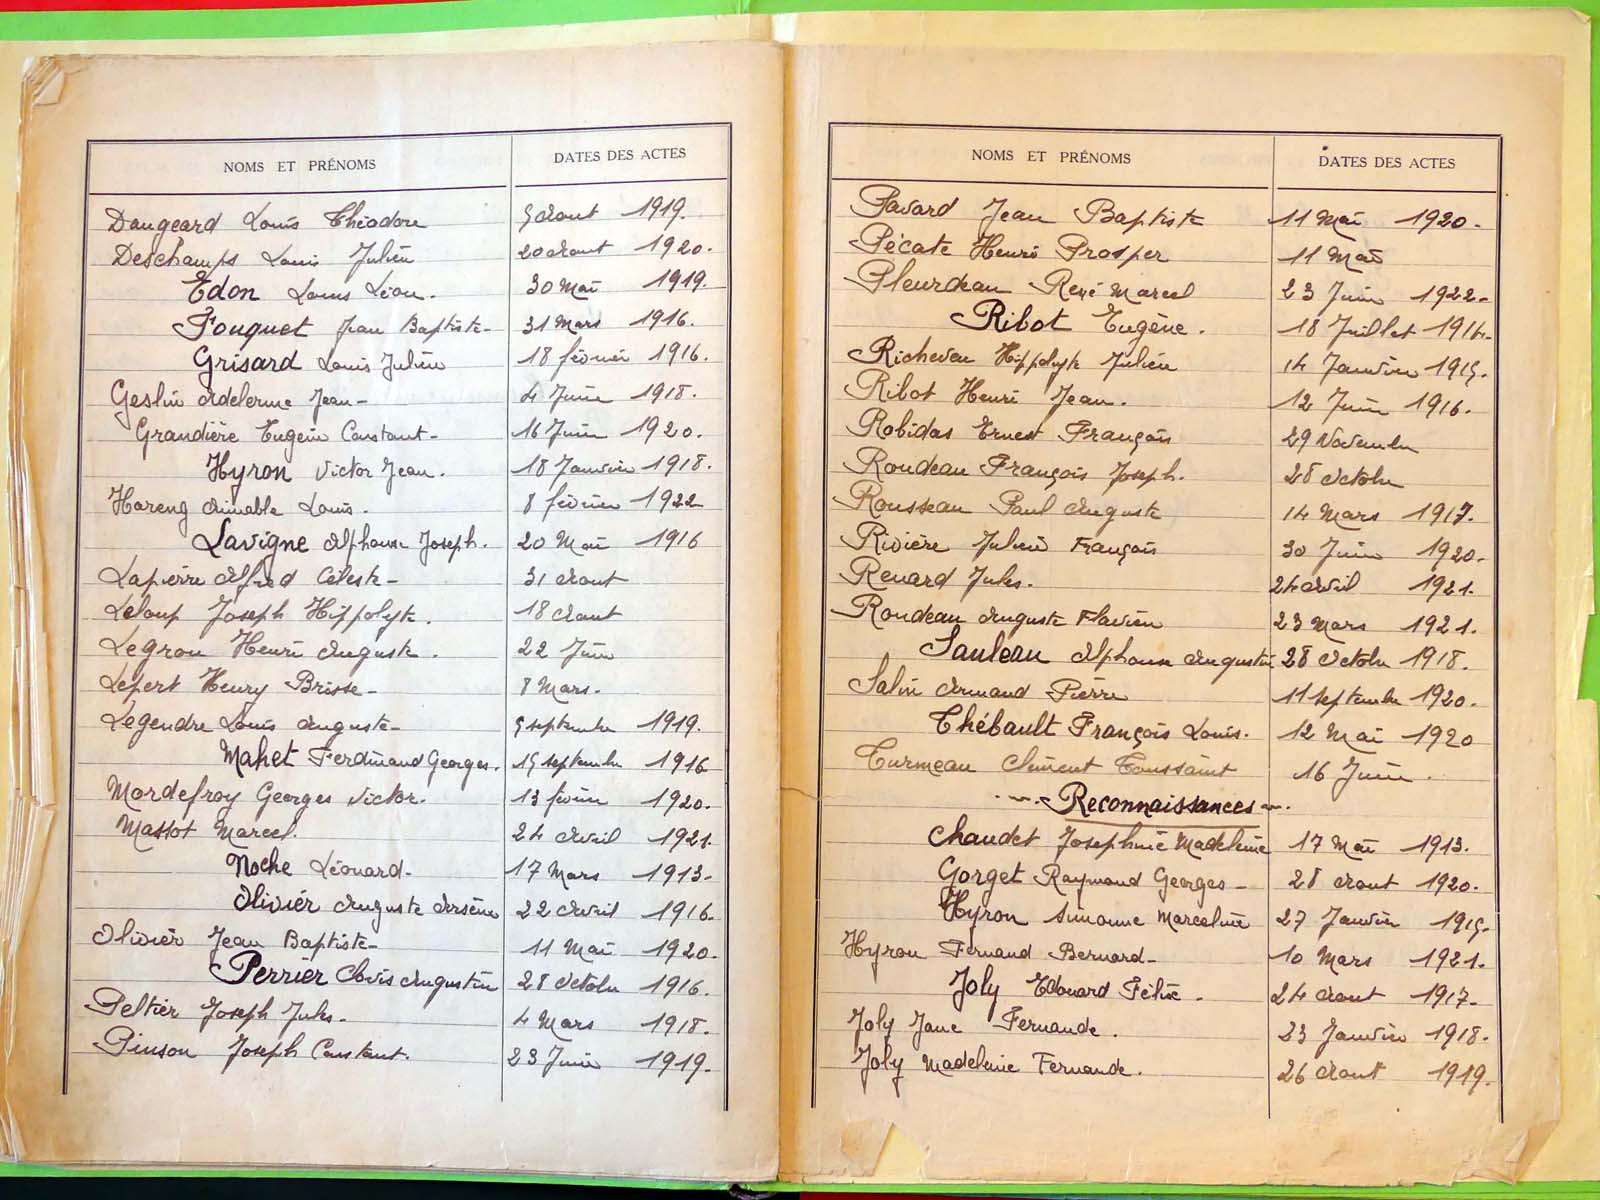 NOMS ET PRÉNOMS DATES DES ACTES
Dangeard Louis Théodore 5 Août 1919.
Deschamps Louis Julien 20 Août 1920.
Edon Louis Léon. 30 Mai 1919.
Fouquet Jean Baptiste- 31 Mars 1916.
Grisard Louis Julien 18 février 1916.
Geslin Adelerme Jean- 4 Juin 1918.
Grandière Eugène Constant- 16 Juin 1920.
Hyron Victor Jean. 18 Janvier 1918.
Hareng Aimable Louis. 8 février 1922
Lavigne Alphonse Joseph. 20 Mai 1916
Lapierre Alfred Céleste- 31 Août
Leloup Joseph Hippolyte. 18 Août
Legrou Henri Auguste. 22 Juin
Lepert Henry Brisse- 8 Mars.
Legendre Louis Auguste- 5 septembre 1919.
Mahet Ferdinand Georges. 15 septembre 1916
Mordefroy Georges Victor. 13 février 1920.
Massot Marcel. 24 Avril 1921.
Noche Léonard- 17 Mars 1913.
Olivier Auguste Arsène 22 Avril 1916.
Olivier Jean Baptiste- 11 Mai 1920.
Perrier Clovis Augustin 28 Octobre 1916.
Peltier Joseph Jules. 4 Mars 1918.
Pinson Joseph Constant. 23 Juin 1919.
NOMS ET PRÉNOMS DATES DES ACTES
Pavard Jean Baptiste 11 Mai 1920.
Pécate Henri Prosper 11 Mai
Pleurdeau René Marcel 23 Juin 1922-
Ribot Eugène. 18 Juillet 1914.
Richeveu Hippolyte Julien 14 Janvier 1915.
Ribot Henri Jean. 12 Juin 1916.
Robidas Ernest François 29 Novembre
Rondeau François Joseph. 28 Octobre
Rousseau Paul Auguste 14 Mars 1917.
Rivière Julien François 30 Juin 1920.
Renard Jules. 24 Avril 1921.
Rondeau Auguste Flavien 23 Mars 1921.
Sauleau Alphonse Augustin 28 Octobre 1918.
Salin Armand Pierre 11 septembre 1920.
Thébault François Louis. 12 Mai 1920
Turmeau Clément Toussaint 16 Juin.
Reconnaissances
Chaudet Joséphine Madeleine 17 Mai 1913.
Gorget Raymond Georges- 28 Août 1920.
Hyron Simonne Marceline 27 Janvier 1915.
Hyron Fernand Bernard- 10 Mars 1921.
Joly Edouard Félix. 24 Août 1917.
Joly Jane Fernande. 23 Janvier 1918.
Joly Madeleine Fernande. 26 Août 1919.